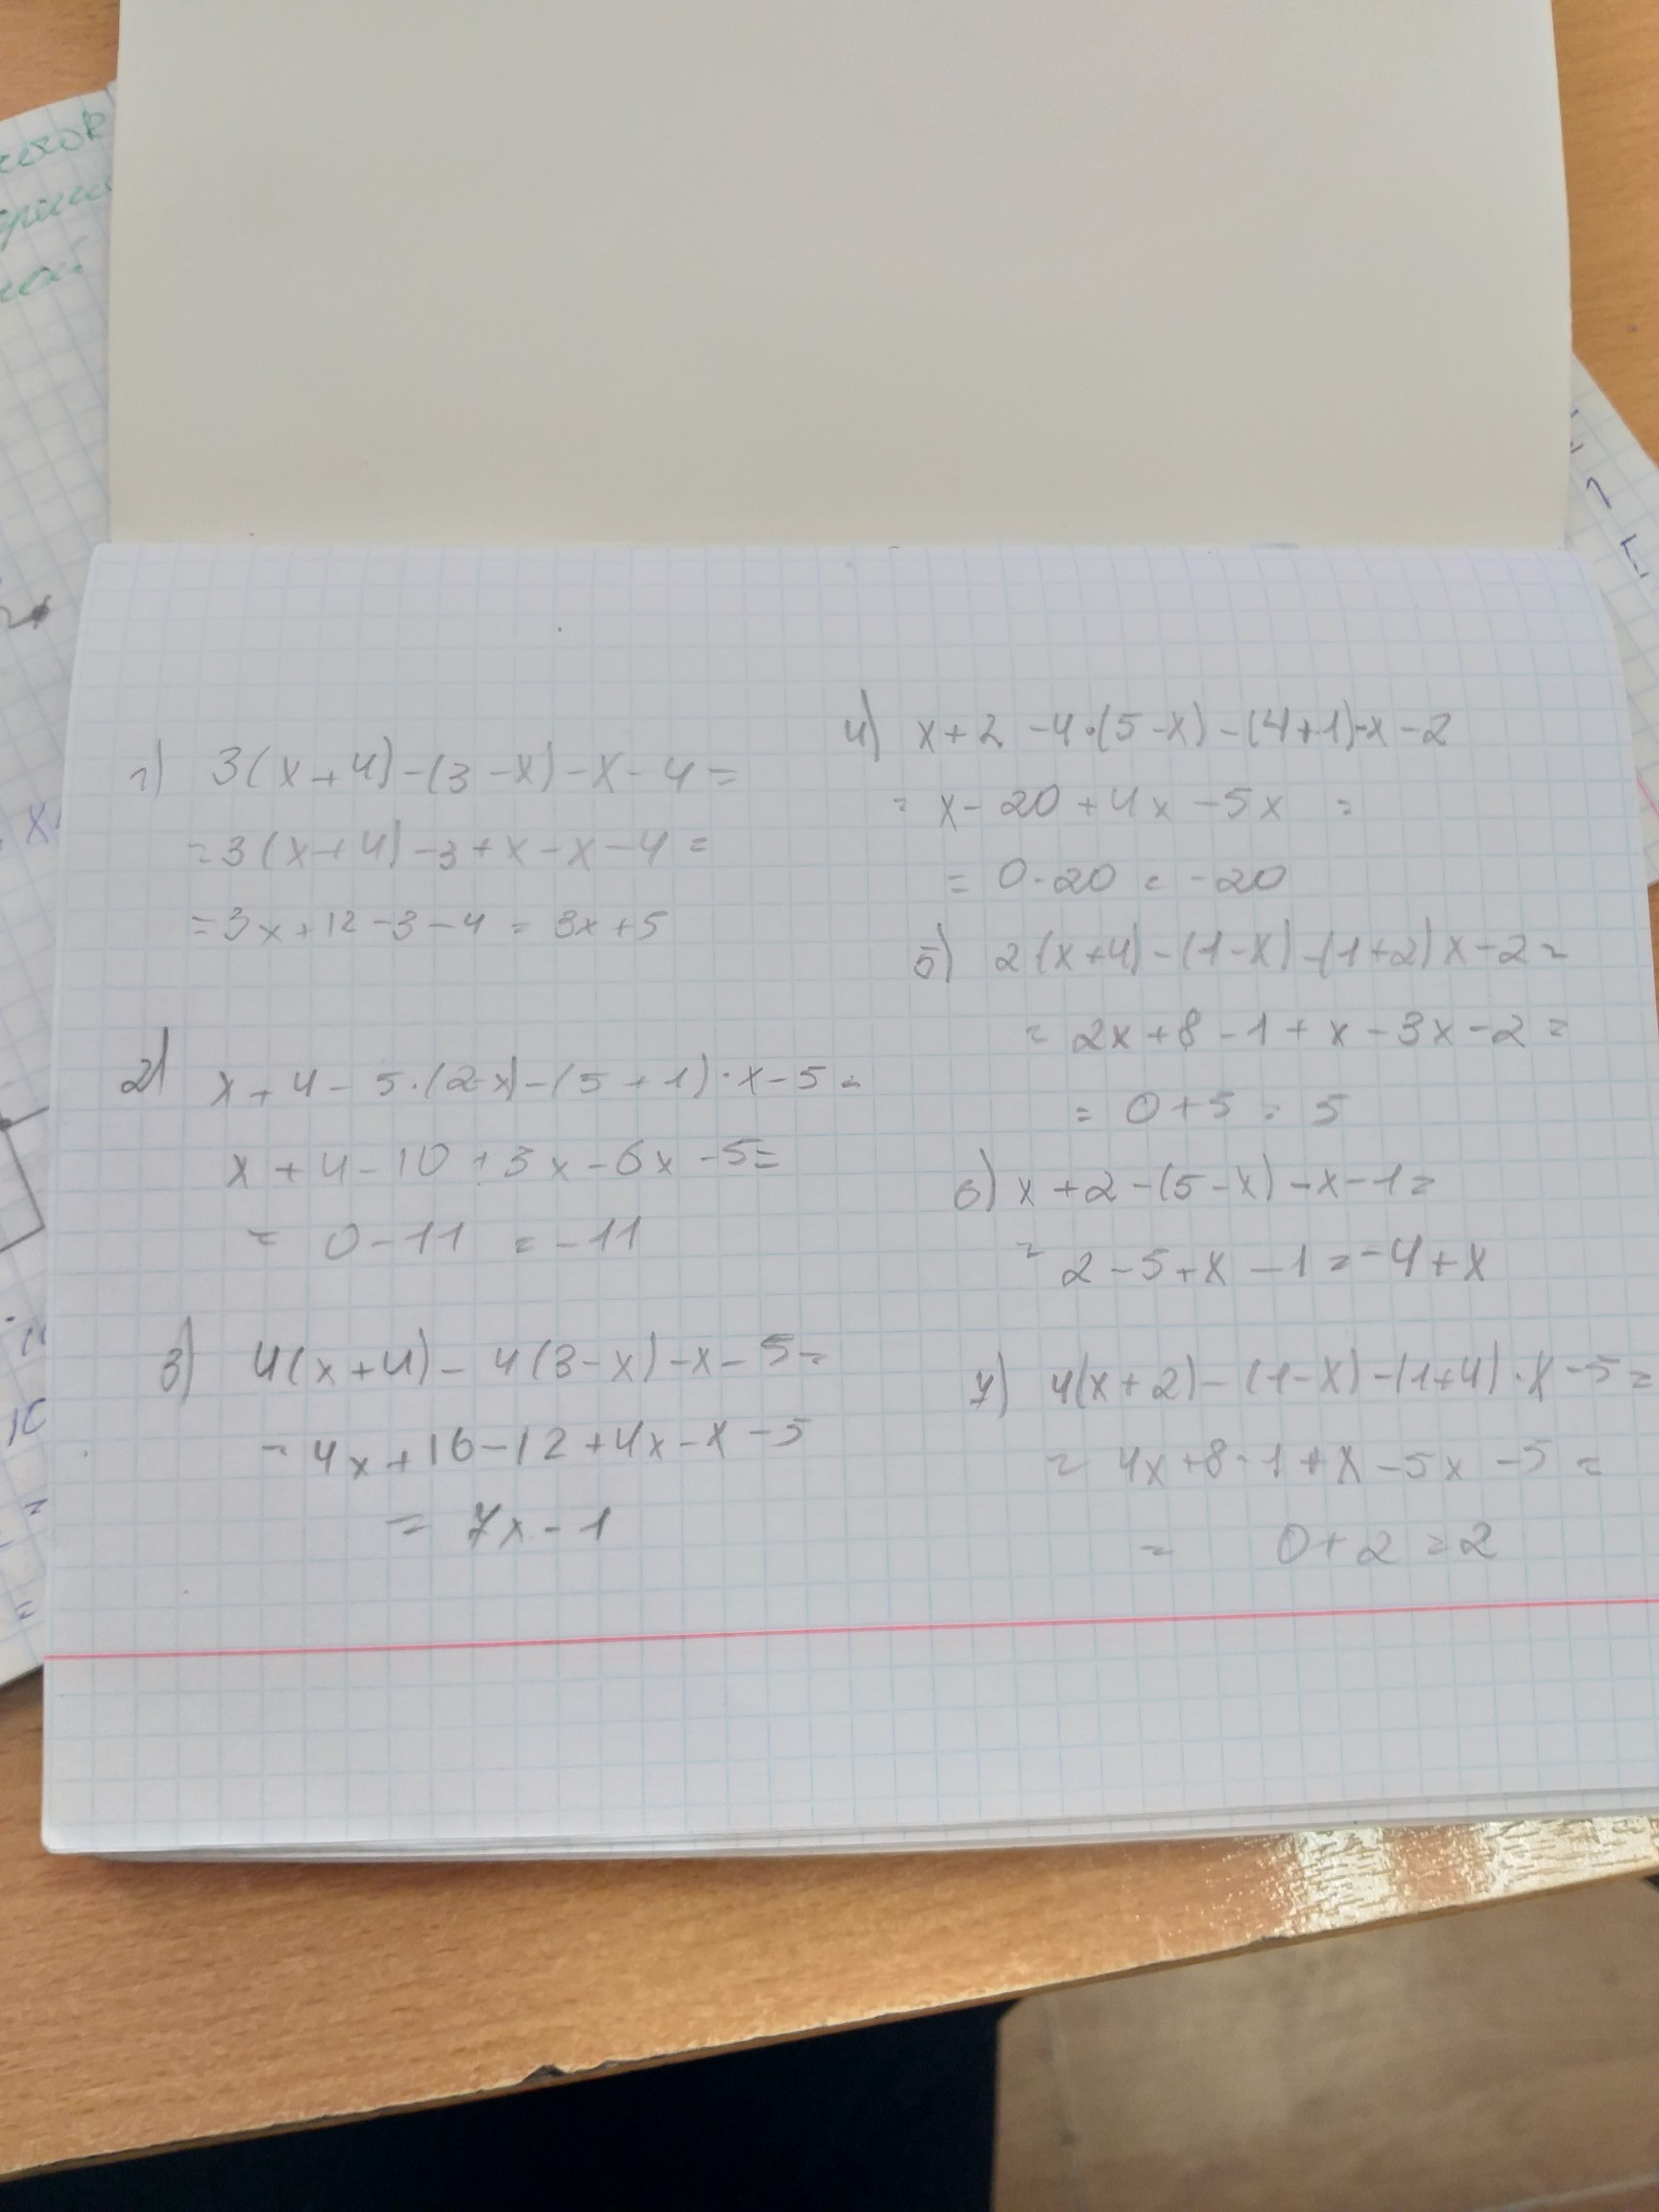 1) 3(x+4)-(3-x)-x-4=
=3(x+4)-3+x-x-4=
=3x+12-3-4=3x+5
2) x+4-5·(2-x)-(5+1)·x-5=
x+4-10+3x-6x-5=
= 0-11 = -11
3) 4(x+4)-4(3-x)-x-5=
= 4x+16-12+4x-x-5
= 7x-1
4) x+2-4·(5-x)-(4+1)·x-2
= x-20+4x-5x =
= 0-20 = -20
5) 2(x+4)-(1-x)-(1+2)x-2=
= 2x+8-1+x-3x-2=
= 0+5=5
6) x+2-(5-x)-x-1=
= 2-5+x-1=-4+x
7) 4(x+2)-(1-x)-(1+4)·x-5=
= 4x+8-1+x-5x-5=
= 0+2=2